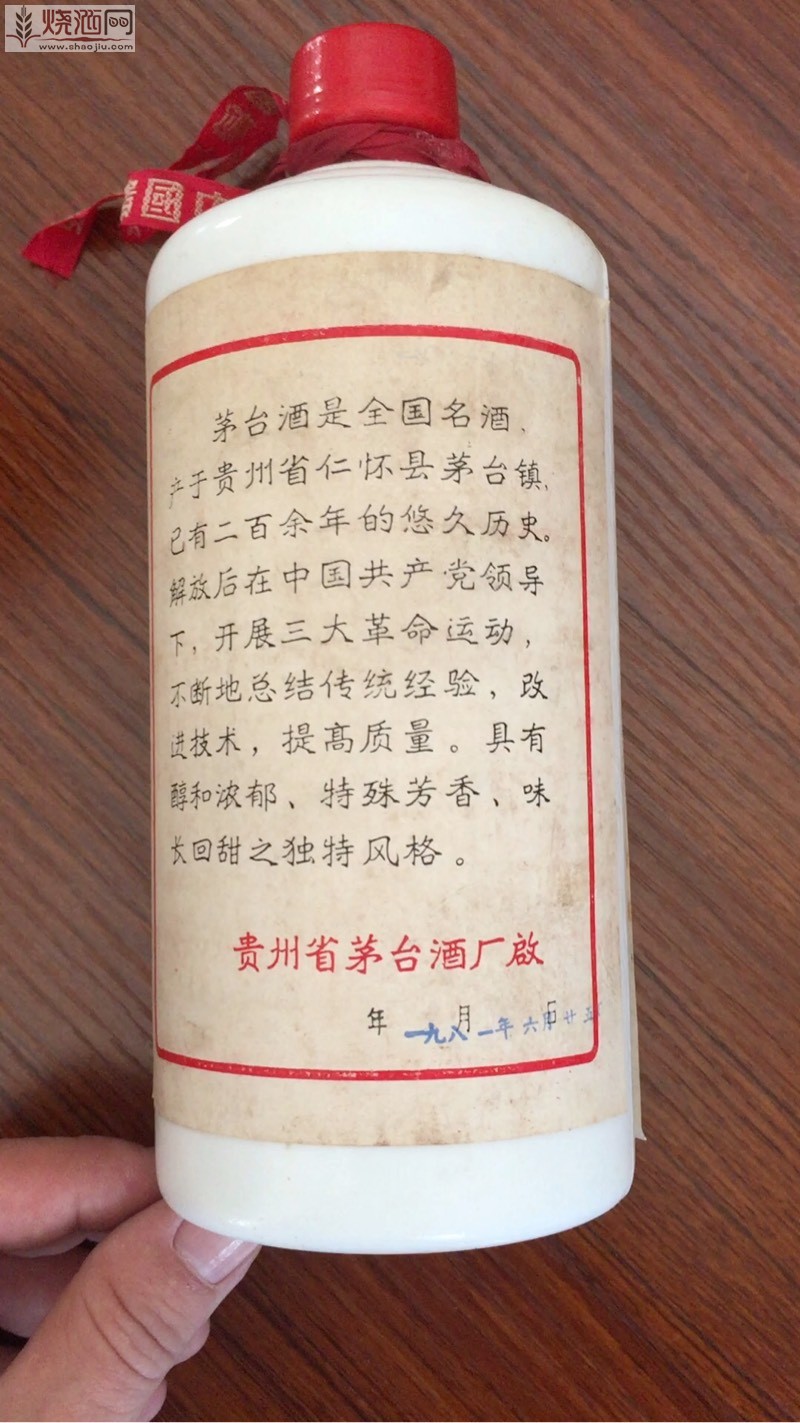 烧酒网
www.shaojiu.com
茅台酒是全国名酒、
产于贵州省仁怀县茅台镇,
已有二百余年的悠久历史。
解放后在中国共产党领导
下,开展三大革命运动,
不断地总结传统经验,改
进技术,提高质量。具有
醇和浓郁、特殊芳香、味
长回甜之独特风格。
贵州省茅台酒厂啟
年 月 日
一九八一年六月廿五